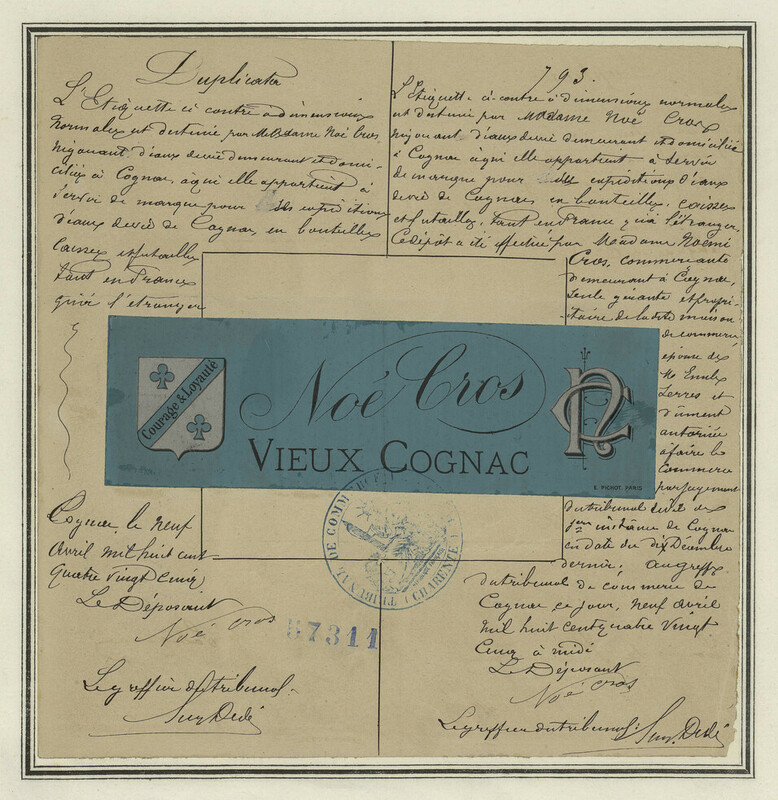 Duplicata
L'Etiquette ci contre à dimensions
normales est destinée par Madame Noé Cros,
négociant d'eaux de vie demeurant et domi-
ciliée à Cognac, à qui elle appartient à
servir de marque pour ses expéditions
d'eaux de vie de Cognac, en bouteilles
caisses et futailles
tant en France
qu'à l'étranger
Cognac, le neuf
Avril mil huit cent
quatre vingt cinq
Le Déposant
Noé Cros
Le greffier du tribunal.
793.
L'Etiquette ci-contre à dimensions normales
est destinée par Madame Noé Cros
négociant d'eaux de vie demeurant et domiciliée
à Cognac à qui elle appartient à servir
de marque pour ses expéditions d'eaux
de vie de Cognac, en bouteilles, caisses
et futailles, tant en France qu'à l'étranger.
Ce dépôt a été effectué par Madame Noémi
Cros, commerçante
demeurant à Cognac,
seule gérante et propri-
étaire de la dite maison
de commerce,
épouse de
M. Emile
Serres et
dûment
autorisée
à faire le
Commerce
par jugement
du tribunal civil de
1ère instance de Cognac
en date du dix Décembre
dernier, au greffe
du tribunal de commerce de
Cognac ce jour, neuf Avril
mil huit cent quatre vingt
cinq à midi
Le Déposant
Noé Cros
Le greffier du tribunal:
Courage & Loyauté
Noé Cros
VIEUX COGNAC
NC
E. PICHOT. PARIS
TRIBUNAL DE COMMERCE
CHARENTE
57311